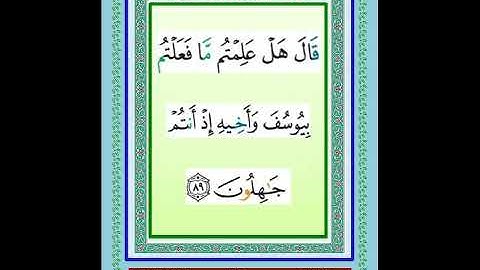 قَالَ هَلۡ عَلِمۡتُم مَّا فَعَلۡتُم
بِيُوسُفَ وَأَخِيهِ إِذۡ أَنتُمۡ
جَٰهِلُونَ ٨٩